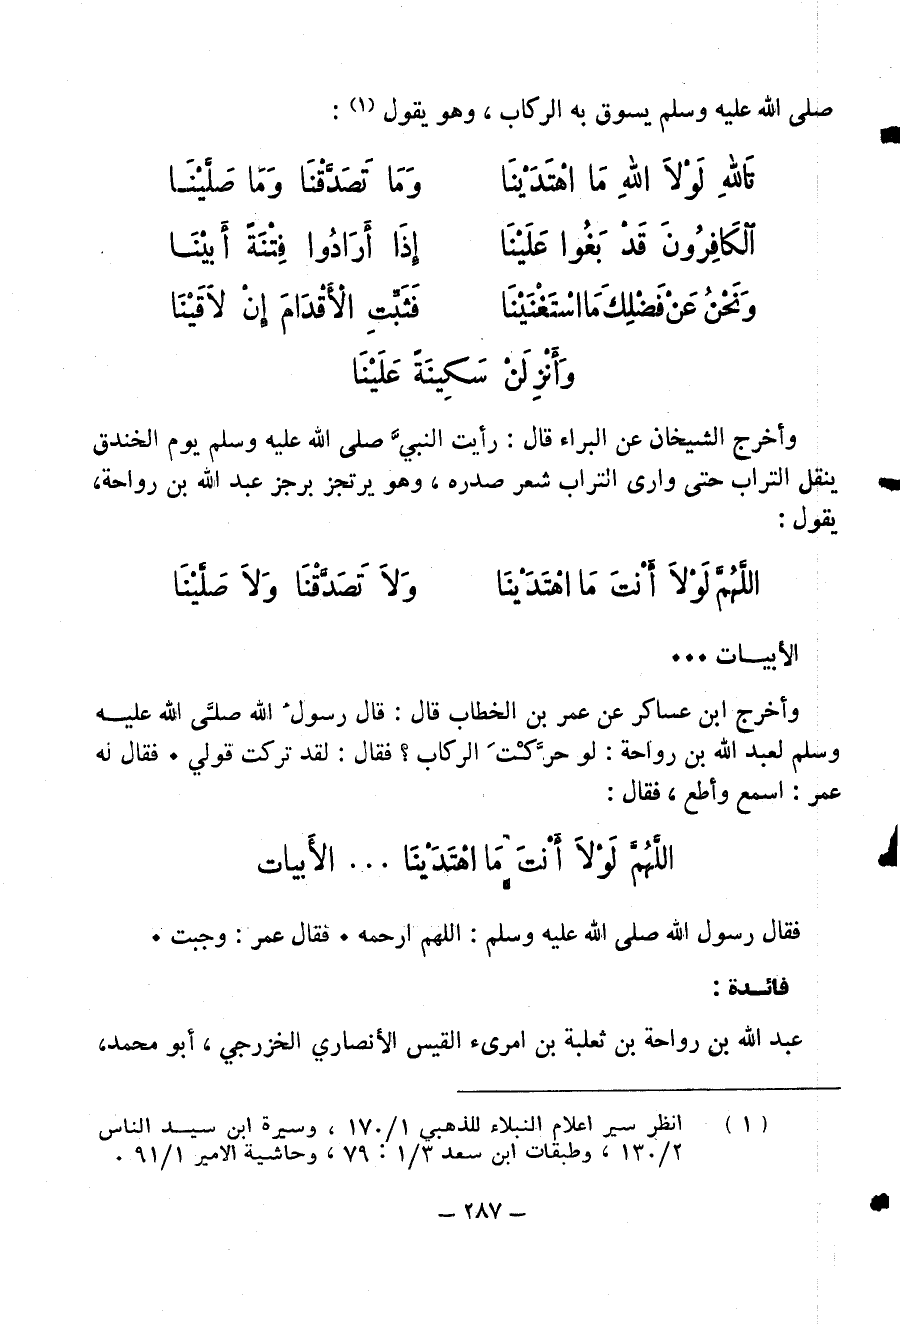 صلى الله عليه وسلم يسوق به الركاب ، وهو يقول (١) :
تَاللهِ لَوْلاَ اللهِ مَا اهْتَدَيْنَا وَمَا تَصَدَّقْنَا وَمَا صَلَّيْنَا
اَلْكَافِرُونَ قَدْ بَغُوا عَلَيْنَا إِذَا أَرَادُوا فِتْنَةً أَبَيْنَا
وَنَحْنُ عَنْ فَضْلِكَ مَا اسْتَغْنَيْنَا فَثَبِّتِ الْأَقْدَامَ إِنْ لاَقَيْنَا
وَأَنْزِلَنْ سَكِينَةً عَلَيْنَا
وأخرج الشيخان عن البراء قال : رأيت النبيَّ صلى الله عليه وسلم يوم الخندق
ينقل التراب حتى وارى التراب شعر صدره ، وهو يرتجز برجز عبد الله بن رواحة،
يقول :
اللَّهُمَّ لَوْلاَ أَنْتَ مَا اهْتَدَيْنَا وَلاَ تَصَدَّقْنَا وَلاَ صَلَّيْنَا
الأبيات ...
وأخرج ابن عساكر عن عمر بن الخطاب قال : قال رسولُ الله صلَّى الله عليه
وسلم لعبد الله بن رواحة : لو حرَّكْتَ الركاب ؟ فقال : لقد تركت قولي . فقال له
عمر : اسمع وأطع ، فقال :
اللَّهُمَّ لَوْلاَ أَنْتَ مَا اهْتَدَيْنَا ... الأَبيات
فقال رسول الله صلى الله عليه وسلم : اللهم ارحمه . فقال عمر : وجبت .
فائدة :
عبد الله بن رواحة بن ثعلبة بن امرىء القيس الأنصاري الخزرجي ، أبو محمد،
(١) انظر سير اعلام النبلاء للذهبي ١/١٧٠ ، وسيرة ابن سيد الناس
٢/١٣٠ ، وطبقات ابن سعد ١/٣ : ٧٩ ، وحاشية الامير ١/٩١ .
— ٢٨٧ —